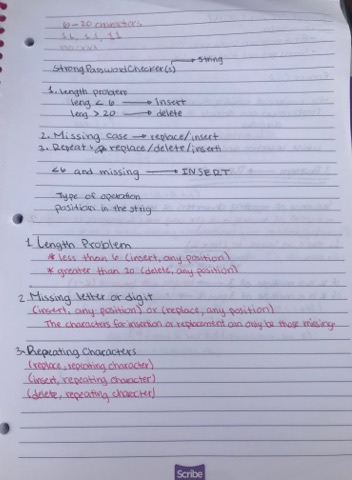 6-20 characters
1L, 1L, 1I
string
StrongPasswordChecker(s)
1. Length problem
leng < 6 → Insert
leng > 20 → delete
2. Missing case → replace/insert
3. Repeat → replace/delete/insert
<6 and missing → INSERT
Type of operation
position in the strig
1. Length Problem
* less than 6 (insert, any position)
* greater than 20 (delete, any position)
2. Missing letter or digit
(insert, any position) or (replace, any position)
The characters for insertion or replacement can only be those missing.
3. Repeating Characters
(replace, repeating character)
(insert, repeating character)
(delete, repeating charecter)
Scribe